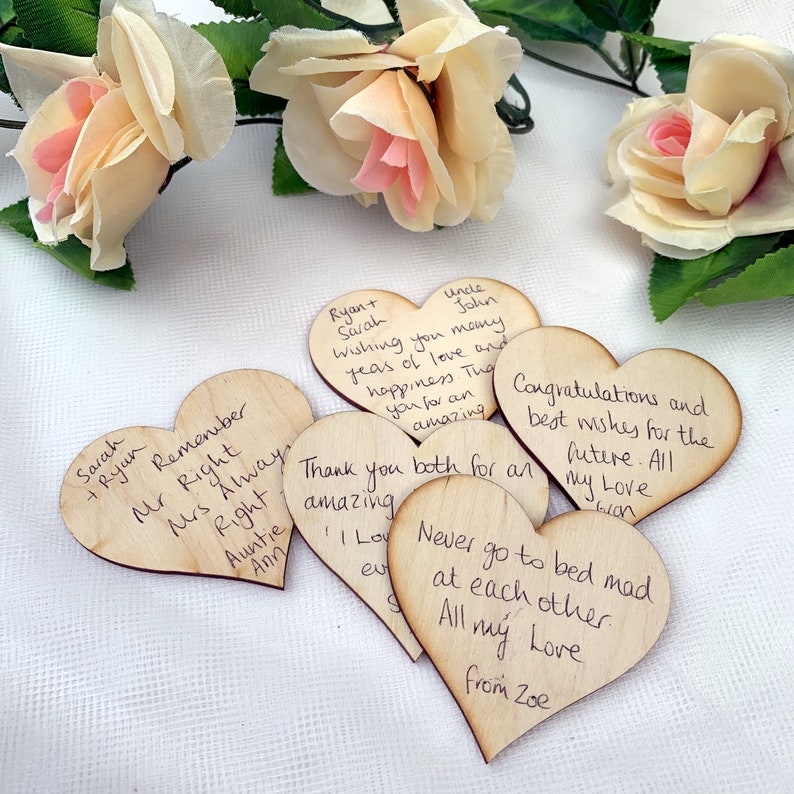 Ryan +
Sarah
Uncle
John
Wishing you memy
yeas of love and
happiness. Tha
you for an
amazing
Congratulations and
best wishes for the
future. All
my Love
Sarah
+ Ryan
Remember
Mr Right
Mrs Always
Right
Auntie
Ann
Thank you both for an
amazing
'I Lov
ev
Never go to bed mad
at each other.
All my Love
from Zoe